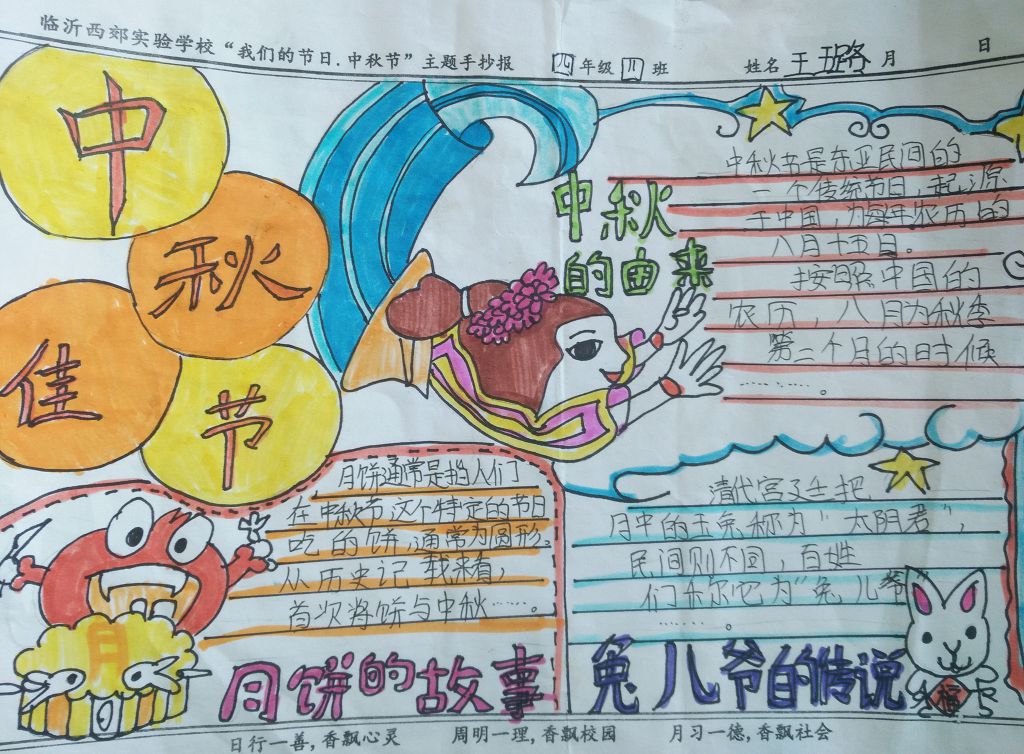 临沂西郊实验学校“我们的节日.中秋节”主题手抄报 四年级四班 姓名 王 璐 月 日
中
秋
佳
节
中秋
的由来
中秋节是东亚民间的
一个传统节日，起源
于中国，为每年农历的
八月十五日。
按照中国的
农历，八月为秋季
第二个月的时候
……………。
月饼通常是指人们
在中秋节这个特定的节日
吃的饼，通常为圆形.
从历史记载来看，
首次将饼与中秋……。
月
月饼的故事
清代宫廷把
月中的玉兔称为“太阴君”，
民间则不同，百姓
们称它为“兔儿爷
………。
福
兔儿爷的传说
日行一善,香飘心灵 周明一理,香飘校园 月习一德,香飘社会